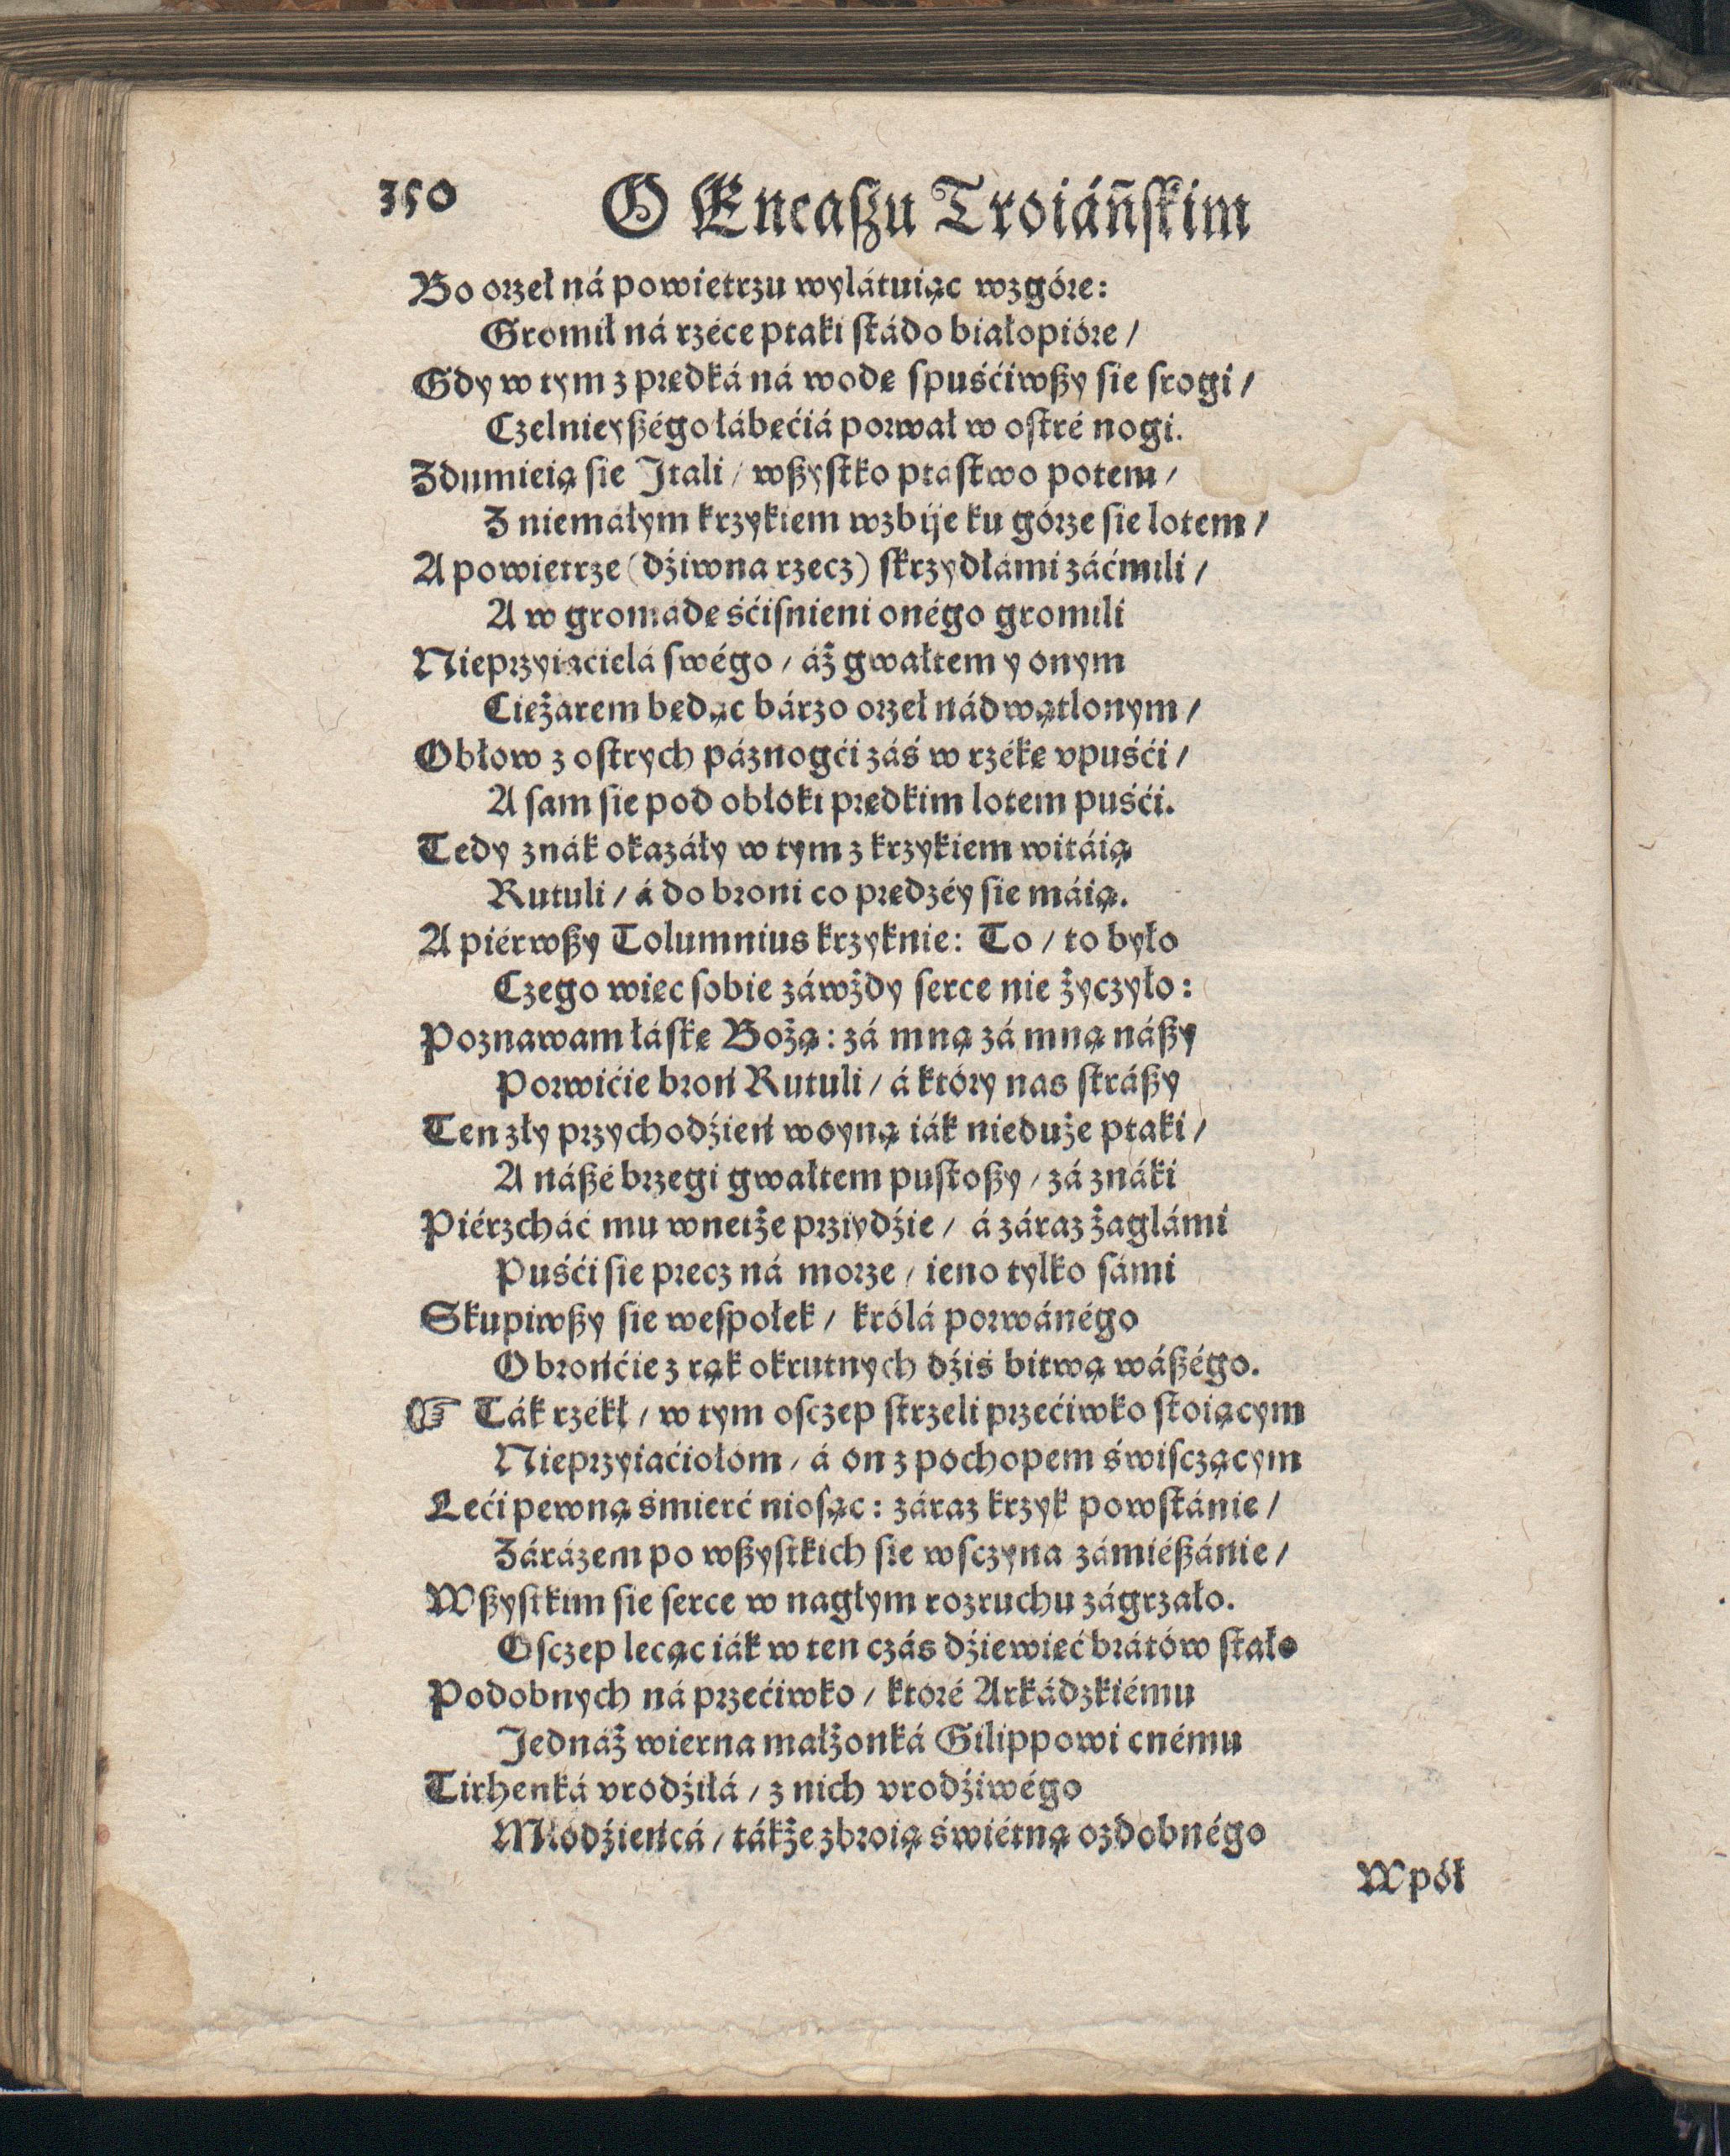 350 O Eneaſzu Troiáńſkim
Bo orzeł ná powietrzu wylátuiąc wzgóre:
Gromił ná rzéce ptaki ſtádo białopióre /
Gdy w tym z prędká ná wodę ſpuśćiwſzy ſie ſrogi /
Czelnieyſzégo łábęćiá porwał w oſtré nogi.
Zdumieią ſie Itali / wſzyſtko ptaſtwo potem /
Z niemáłym krzykiem wzbije ku górze ſie lotem /
A powietrze (dźiwna rzecz) ſkrzydłámi záćmili /
A w gromádę śćiſnieni onégo gromili
Nieprzyiacielá ſwégo / áż gwałtem y onym
Ciężarem będąc bárzo orzeł nádwątlonym /
Obłow z oſtrych páznogći záś w rzékę vpuśći /
A ſam ſie pod obłoki prędkim lotem puśći.
Tedy znák okazáły w tym z krzykiem witáią
Rutuli / á do broni co prędzéy ſie máią.
A piérwſzy Tolumnius krzyknie: To / to było
Czego więc ſobie záwżdy ſerce nie życzyło:
Poznawam łáſkę Bożą: zá mną zá mną náſzy
Porwićie broń Rutuli / á który nas ſtráſzy
Ten zły przychodźień woyną iák nieduże ptaki /
A náſzé brzegi gwałtem puſtoſzy / zá znáki
Piérzcháć mu wnetże prziydźie / á záraz żaglámi
Puśći ſie precz ná morze / ieno tylko ſámi
Skupiwſzy ſie weſpołek / królá porwánégo
Obrońćie z rąk okrutnych dźiś bitwą wáſzégo.
☞ Ták rzékł / w tym oſczep ſtrzeli przećiwko ſtoiącym
Nieprzyiaćiołom / á on z pochopem świſczącym
Leći pewną śmierć nioſąc: záraz krzyk powſtánie /
Zárázem po wſzyſtkich ſie wſczyna zámiéſzánie /
Wſzyſtkim ſie ſerce w nagłym rozruchu zágrzało.
Oſczep lecąc iák w ten czás dźiewięć brátów ſtało
Podobnych ná przećiwko / któré Arkádzkiému
Jednáż wierna małżonká Gilippowi cnému
Tirhenká vrodźiłá / z nich vrodźiwégo
Młodźieńcá / tákże zbroią świétną ozdobnégo
Wpół